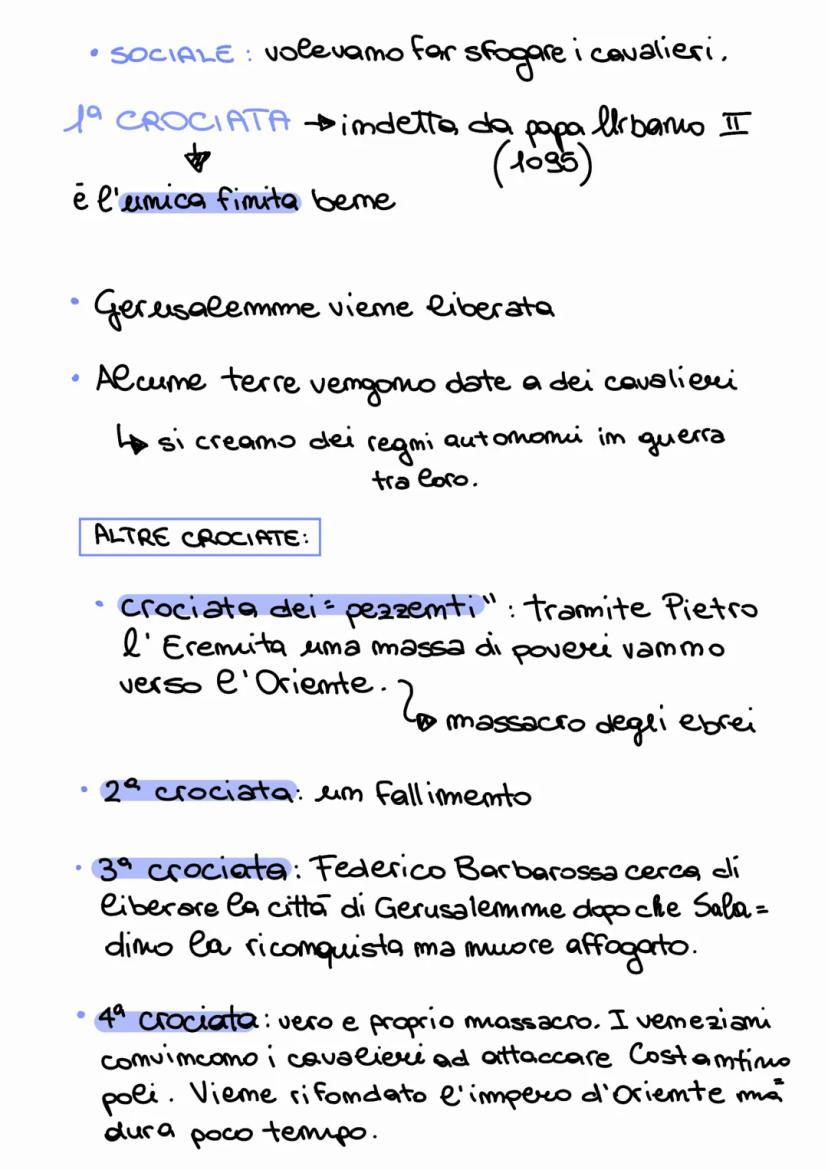 • SOCIALE: volevano far sfogare i cavalieri.
1ª CROCIATA → indetta da papa Urbano II
(1095)
↓
è l'unica finita bene
• Gerusalemme viene liberata
• Alcune terre vengono date a dei cavalieri
↳ si creano dei regni autonomi in guerra
tra loro.
ALTRE CROCIATE:
• crociata dei "pezzenti": tramite Pietro
l'Eremita una massa di poveri vanno
verso l'Oriente.
↳ massacro degli ebrei
• 2ª crociata: un fallimento
• 3ª crociata: Federico Barbarossa cerca di
liberare la città di Gerusalemme dopo che Sala=
dino la riconquista ma muore affogato.
• 4ª crociata: vero e proprio massacro. I veneziani
convincono i cavalieri ad attaccare Costantino=
poli. Viene rifondato l'impero d'Oriente ma
dura poco tempo.